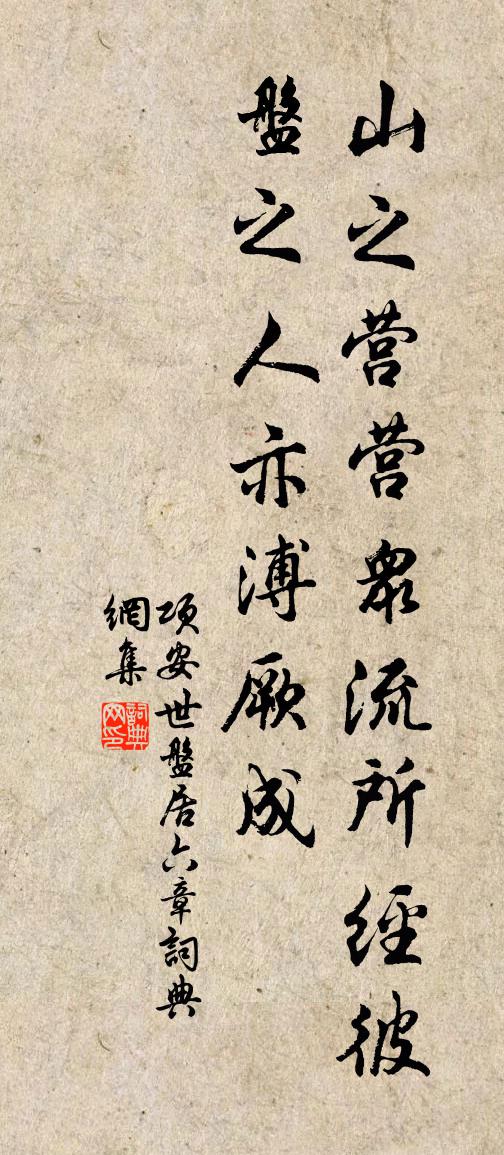 山之营营衆流所經彼
盤之人亦溥厥成
项安世盤居六章詞典
網集
詞典
网印